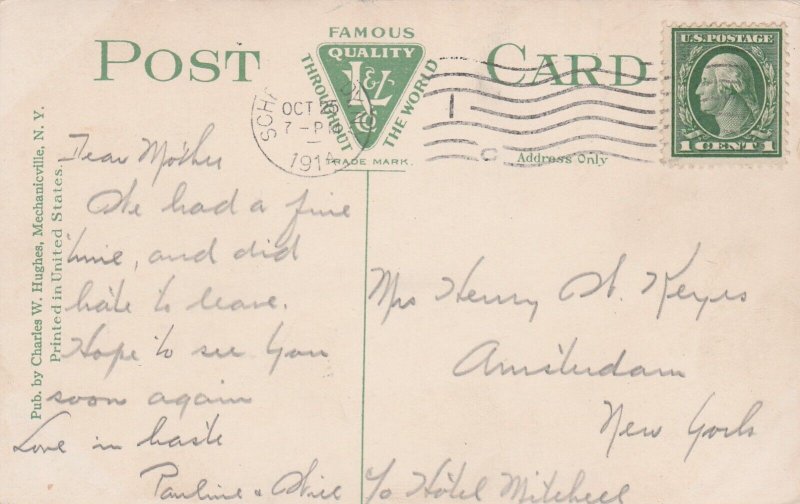 POST CARD
FAMOUS
QUALITY
THROUGHOUT
THE WORLD
TRADE MARK.
OCT
7-P
191
U.S. POSTAGE
1 CENT 1
Address Only
Pub. by Charles W. Hughes, Mechanicville, N. Y.
Printed in United States.
Dear Mother
We had a fine
time, and did
hate to leave.
Hope to see you
soon again
Love in haste
Pauline + Will
Mrs Henry W. Keyes
Amsterdam
New York
c/o Hotel Mitchell